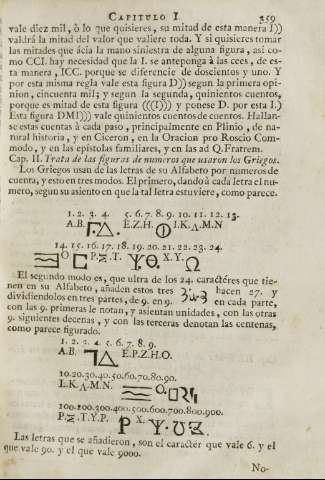 CAPITULO I. 359
vale diez mil, ò lo que quisieres, su mitad de esta manera I))
valdrá la mitad del valor que valiere toda. Y si quisieres tomar
las mitades que ácia la mano siniestra de alguna figura, así co-
mo CCI. hay necesidad que la I. se anteponga à las cees, de es-
ta manera, ICC. porque se diferencie de doscientos y uno. Y
por esta misma regla vale esta figura D)) segun la primera opi-
nion, cincuenta mil; y segun la segunda, quinientos cuentos,
porque es mitad de esta figura (((I))) y ponese D. por esta I.)
Esta figura DMI))) vale quinientos cuentos de cuentos. Hallan-
se estas cuentas à cada paso, principalmente en Plinio, de na-
tural historia, y en Ciceron, en la Oracion pro Roscio Com-
modo, y en las epístolas familiares, y en las ad Q. Fratrem.
Cap. II. Trata de las figuras de numeros que usaron los Griegos.
Los Griegos usan de las letras de su Alfabeto por numeros de
cuenta, y esto en tres modos. El primero, dando à cada letra el nu-
mero, segun su asiento en que la tal letra estuviere, como parece.
1. 2. 3. 4. 5. 6. 7. 8. 9. 10. 11. 12. 13.
A.B. Γ.Δ. E.Z.H. Θ I.K.Λ.M.N
14. 15. 16. 17. 18. 19. 20. 21. 22. 23. 24.
Ξ O Π P.Σ.T. Ψ.Φ. X.Y. Ω
El segundo modo es, que ultra de los 24. caractéres que tie-
nen en su Alfabeto, añaden estos tres hacen 27. y
dividiendolos en tres partes, de 9. en 9. en cada parte,
con las 9. primeras le notan, y asientan unidades, con las otras
9. siguientes decenas, y con las terceras denotan las centenas,
como parece figurado.
1. 2. 3. 4. 5. 6. 7. 8. 9.
A.B. Γ Δ E. P.Z.H.O.
10.20.30.40.50.60.70.80.90.
I.K.Λ.M.N. Ξ
100.200.300.400.500.600.700.800.900.
P.Σ.T.Y.P. X.
Las letras que se añadieron, son el caractér que vale 6. y el
que vale 90. y el que vale 9000.
No-